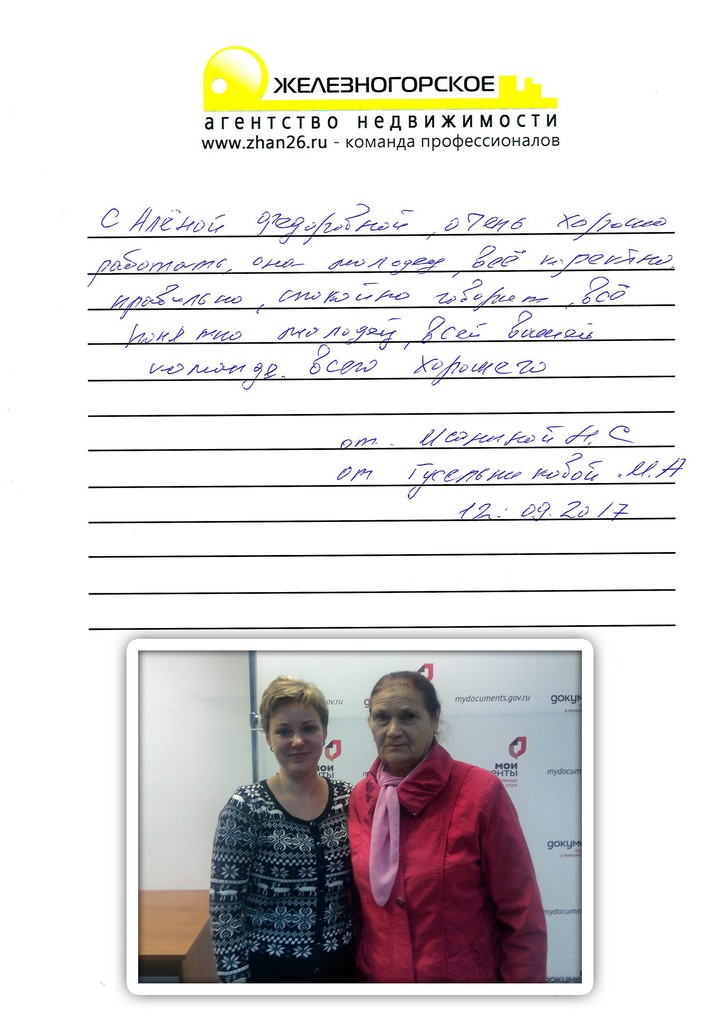 ЖЕЛЕЗНОГОРСКОЕ
агентство недвижимости
www.zhan26.ru - команда профессионалов
С Алёной Федоровной, очень хорошо
работать, она молодец, всё коректно
правильно, спокойно говорит, всё
понятно молодец, всей вашей
команде. всего хорошего
от. Исаниной Н. С
от Гусельниковой .М.А
12. 09. 2017
ov.ru
mydocuments.gov.ru
докум
МОИ
ЕНТЫ
МОИ
ЕНТЫ
mydocum
докуме
mydocuments
докумен